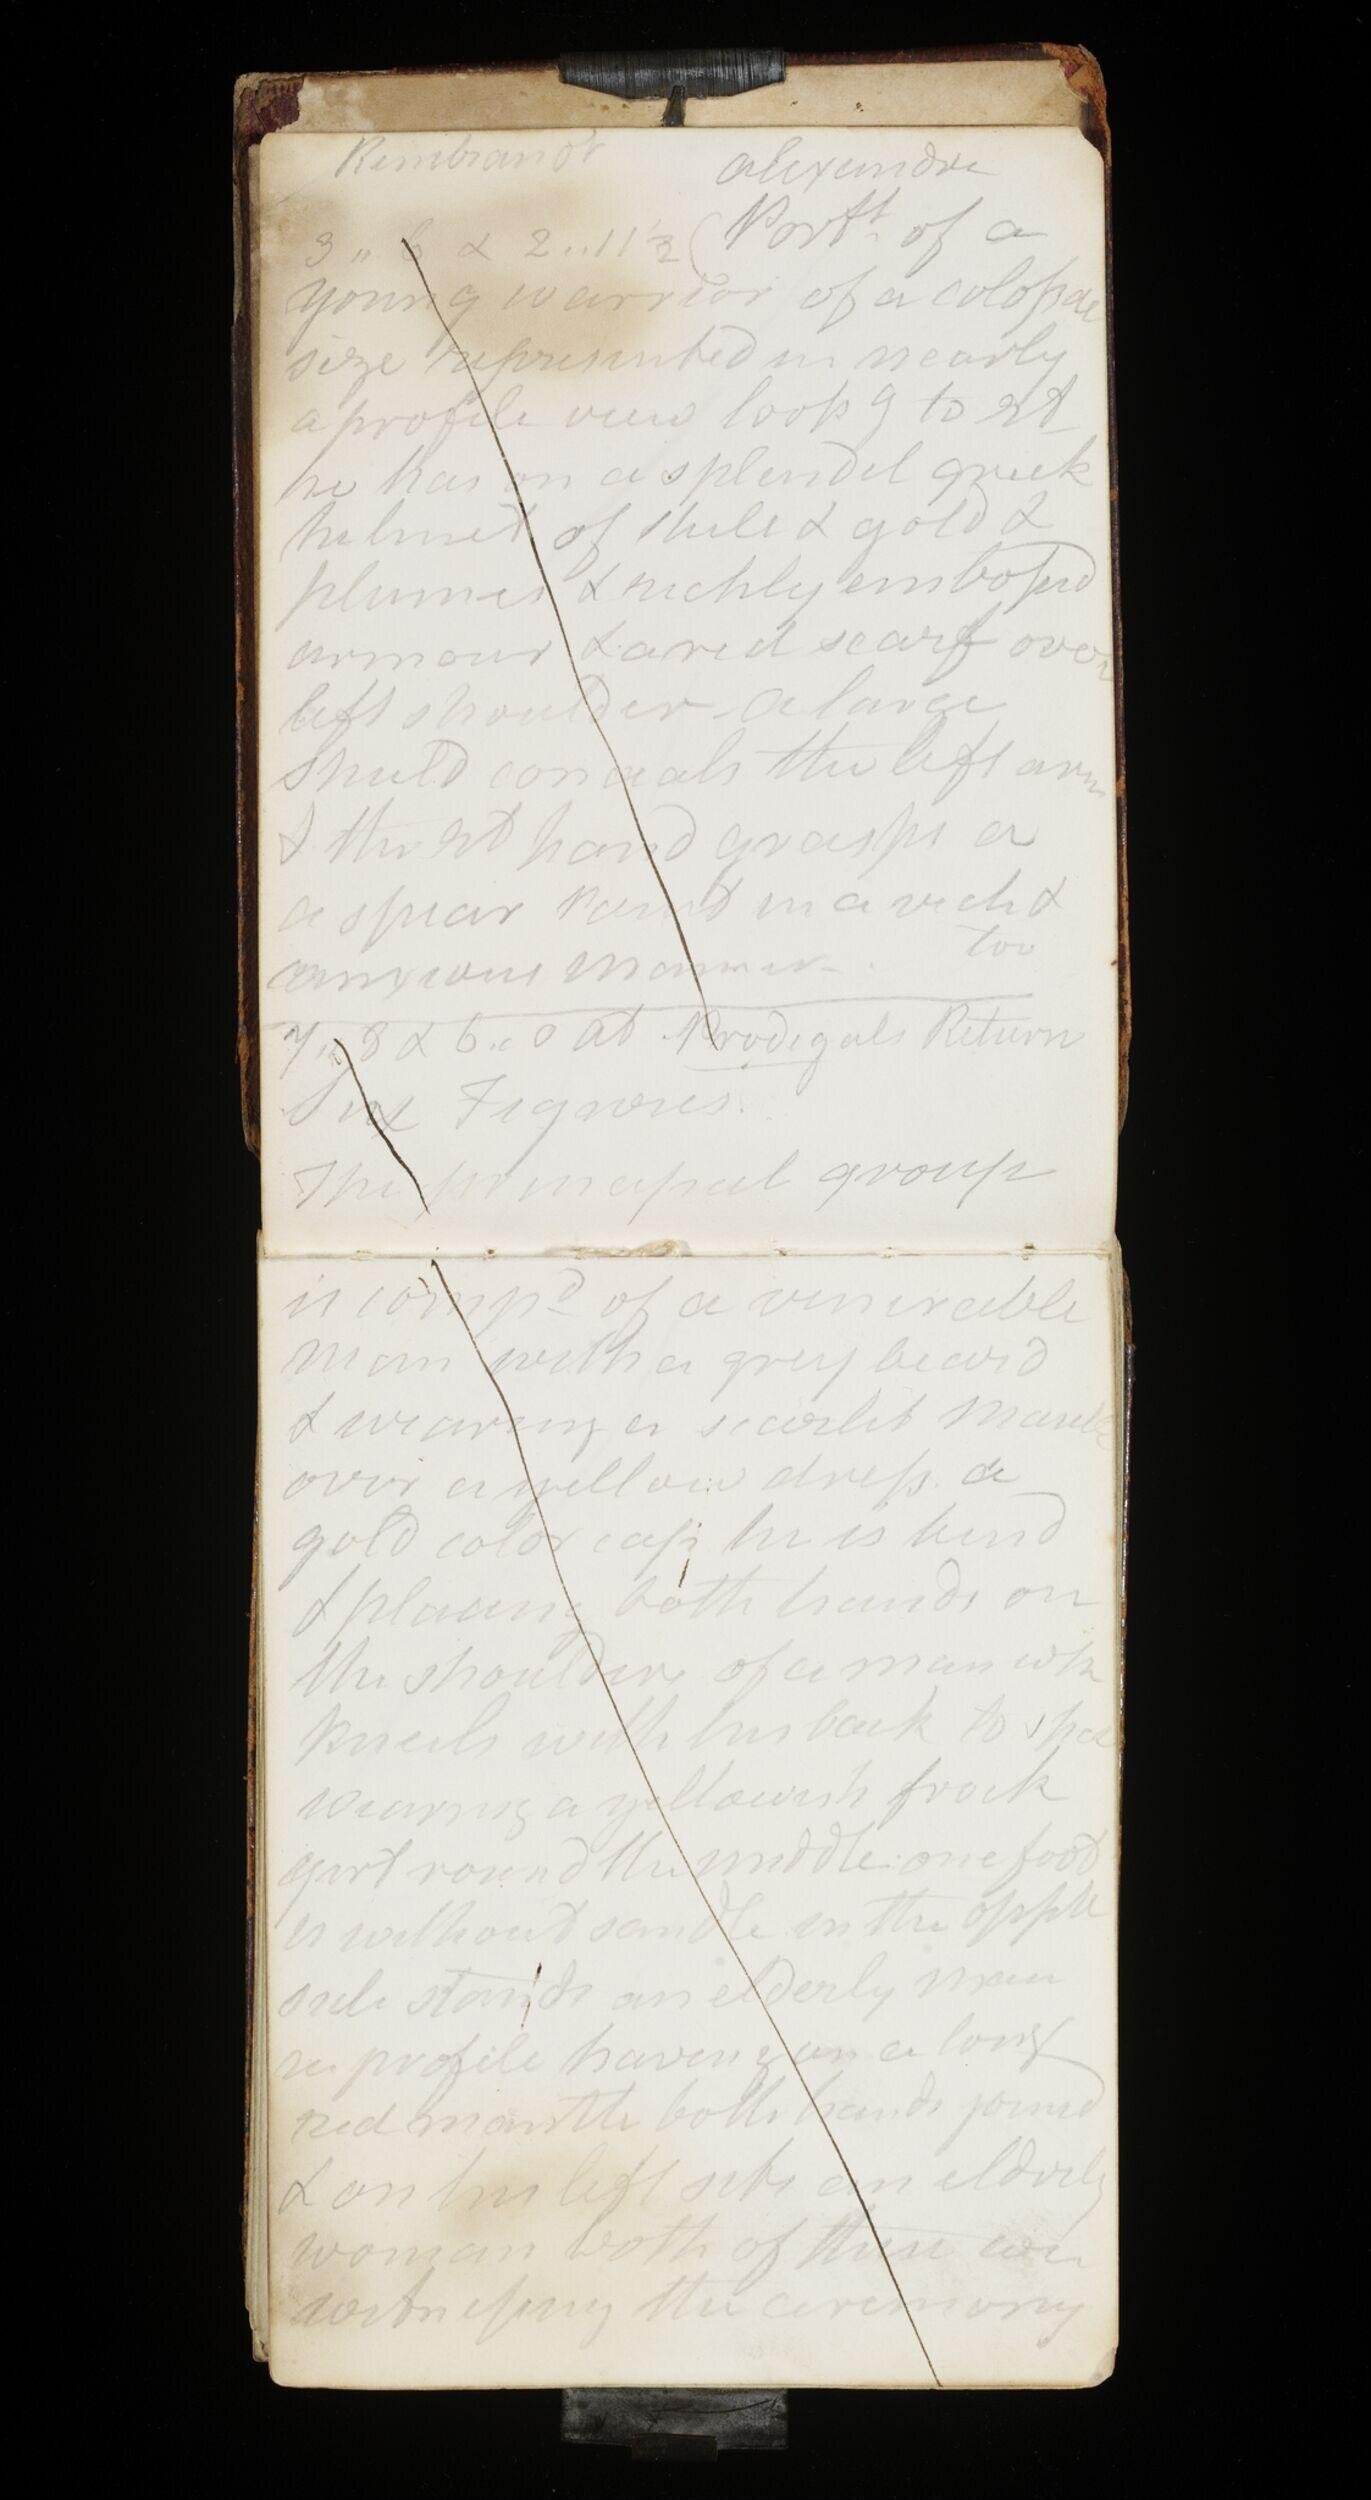 Rembrandt alexandre
3 " 6 & 2 .. 11 1/2 ( Portt. of a
young warrior of a colossal
size represented in nearly
a profile view look g to rt
he has on a splendid greek
helmet of steele & gold &
plumes & richly embossed
armour & a red scarf over
left shoulder a large
Sheild conceals the left arm
& the rt hand grasps a
a spear Paint in a rich &
anxious manner. too
7 .. 8 & 6 .. 0 at Prodigals Return
Six Figures.
The principal group
is compd of a venerable
man with a grey beard
& wearing a scarlet Mantle
over a yellow dress. a
gold color cap he is bend
& placing both hands on
the shoulders of a man who
kneels with his back to spec
wearing a yellowish frock
girt round the middle. one foot
is without sandle in the oppte
side stands an elderly man
in profile having on a long
red mantle both hands joined
& on his left sits an elderly
woman both of these are
witnessing the ceremony